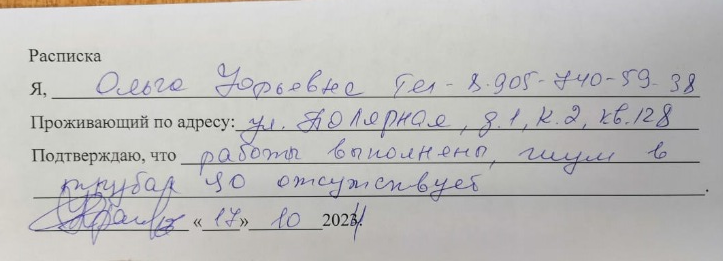 Расписка
Я, Ольга Юрьевна Тел - 8-905-740-59-38
Проживающий по адресу: ул. Полярная, д.1, к.2, кв.128
Подтверждаю, что работы выполнены, шум в
трубах ЦО отсутствует.
«17» 10 2024г.